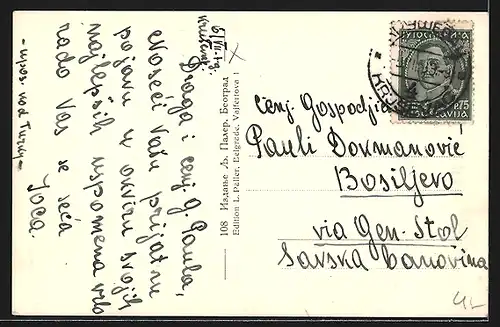 Draga i cenj. g. Paula,
Noseći Vašu prijatnu
pojavu u okviru svojih
najlepših uspomena vrlo
rado Vas se seća
Joca.
108 Издање Љ. Палер, Београд
Edition L. Peller, Belgrade, Vajfertova 1
ЈУГОСЛАВИЈА
0·75
JUGOSLAVIJA
Cenj. Gospodjica
Pauli Dokmanović
Bosiljevo
via Gen. Stol
Savska banovina